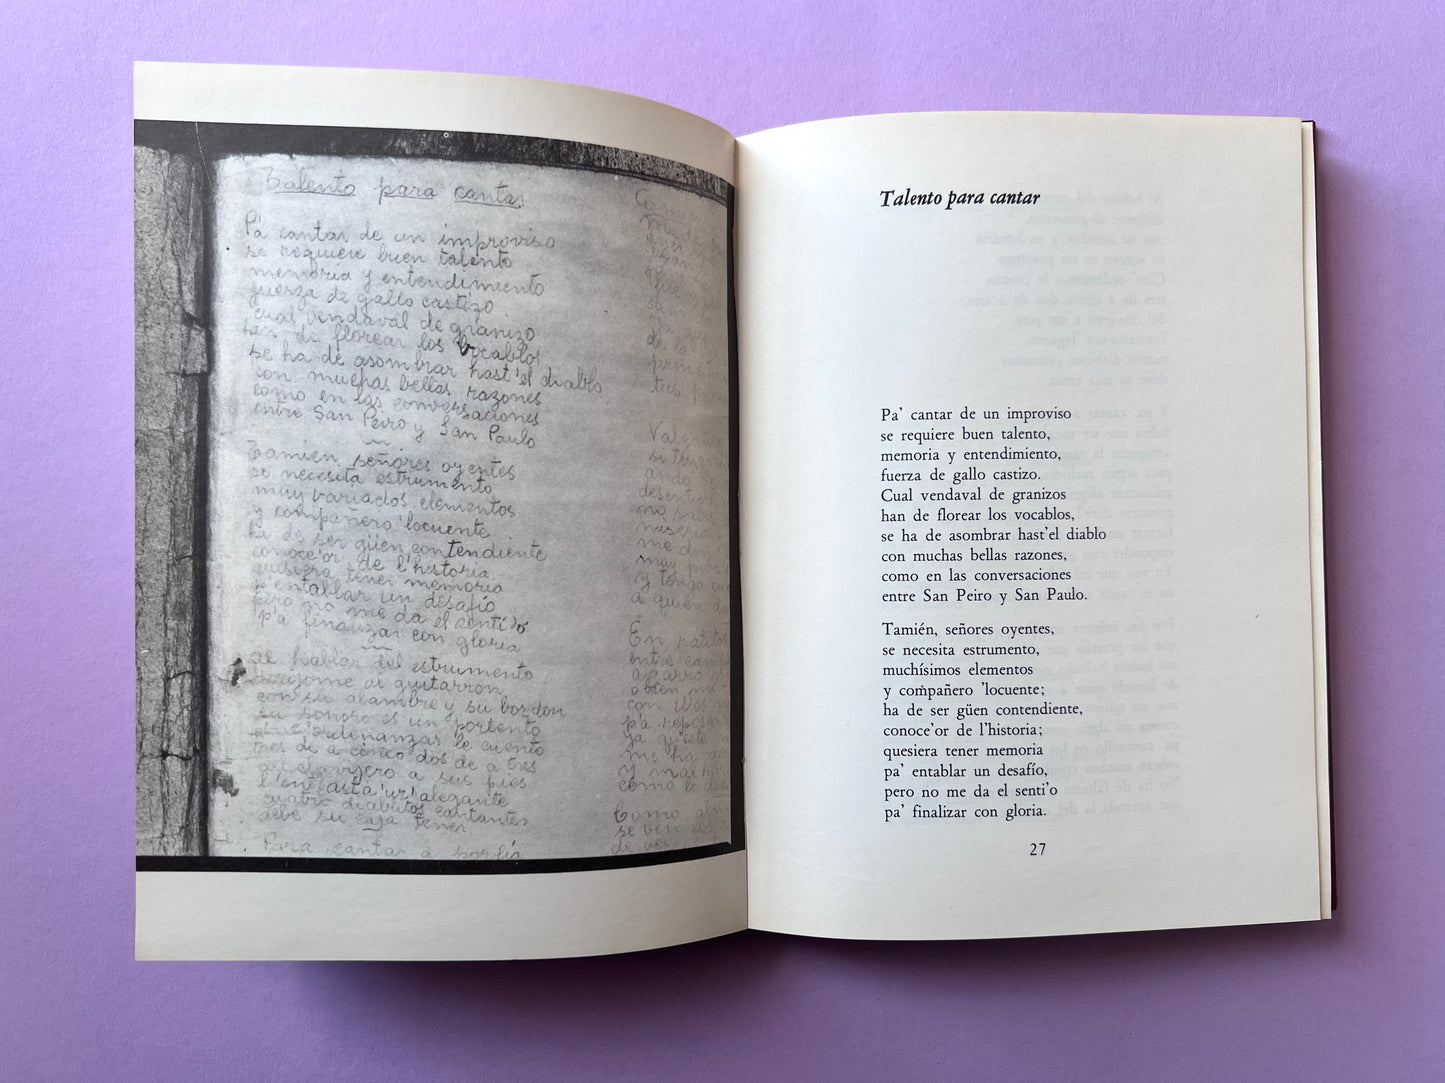 Talento para cantar
Pa cantar de un improviso
se requiere buen talento
memoria y entendimiento
fuerza de gallo castizo
cual vendaval de granizo
han de florear los vocablos
se ha de asombrar hast'el diablo
con muchas bellas razones
como en las conversaciones
entre San Peiro y San Paulo
Tamien señores oyentes
se necesita estrumento
muy variados elementos
y compañero 'locuente
ha de ser güen contendiente
conoce'or de l'historia
quisiera tener memoria
p'entablar un desafio
pero no me da el sentido
pa finalizar con gloria
Al hablar del estrumento
al guitarron
con su alambre y su bordon
su sonoro es un portento
ordenanzas le cuento
tres de a cinco dos de a tres
del clavijero a sus pies
l'entrasta'ur'alegante
cuatro diablitos cantantes
debe su caja tener
Para cantar a porfia
si
a
no
me
y tengo
a quien
En
entre
agarro
con
pa reposar
me ha
y
como
Como
se ven los
de
Talento para cantar
Pa' cantar de un improviso
se requiere buen talento,
memoria y entendimiento,
fuerza de gallo castizo.
Cual vendaval de granizos
han de florear los vocablos,
se ha de asombrar hast'el diablo
con muchas bellas razones,
como en las conversaciones
entre San Peiro y San Paulo.
Tamién, señores oyentes,
se necesita estrumento,
muchísimos elementos
y compañero 'locuente;
ha de ser güen contendiente,
conoce'or de l'historia;
quesiera tener memoria
pa' entablar un desafío,
pero no me da el senti'o
pa' finalizar con gloria.
27